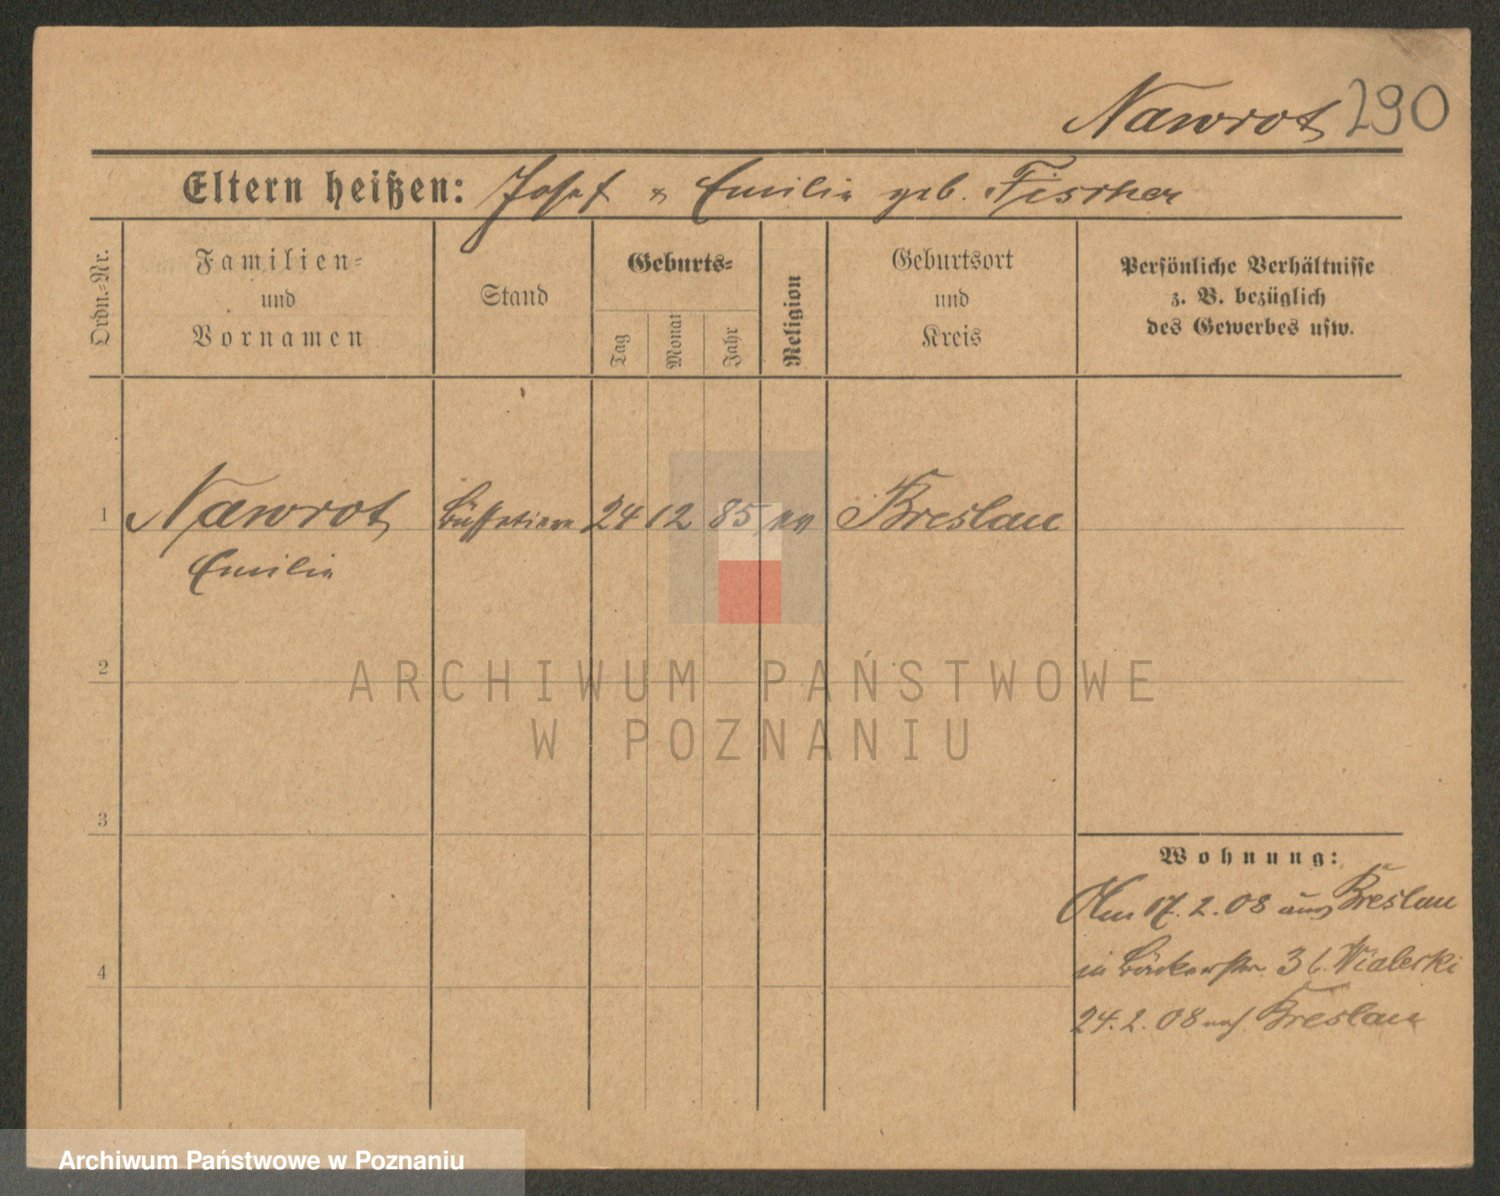 Nawrot 290
Eltern heißen: Josef & Emilie geb. Fischer
Ordn.-Nr.
Familien-
und
Vornamen
Stand
Geburts-
Tag
Monat
Jahr
Religion
Geburtsort
und
Kreis
Persönliche Verhältnisse
z. B. bezüglich
des Gewerbes usw.
1 Nawrot Büffetiere 24 12 85 ev Breslau
Emilie
2
ARCHIWUM PAŃSTWOWE
W POZNANIU
3
Wohnung:
Am 17.2.08 aus Breslau
in Bäckerstr. 3 b. Wialecki
4
24.2.08 nach Breslau
Archiwum Państwowe w Poznaniu